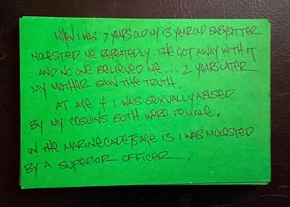 WHEN I WAS 7 YEARS OLD MY 13 YEAR OLD BABYSITTER
MOLESTED ME REPEATEDLY. SHE GOT AWAY WITH IT
AND NO ONE BELIEVED ME... 2 YEARS LATER
MY MOTHER SAW THE TRUTH.
AT AGE 4 I WAS SEXUALLY ABUSED
BY MY COUSINS BOTH WERE FEMALE.
IN THE MARINE CADETS AGE 15 I WAS MOLESTED
BY A SUPERIOR OFFICER.